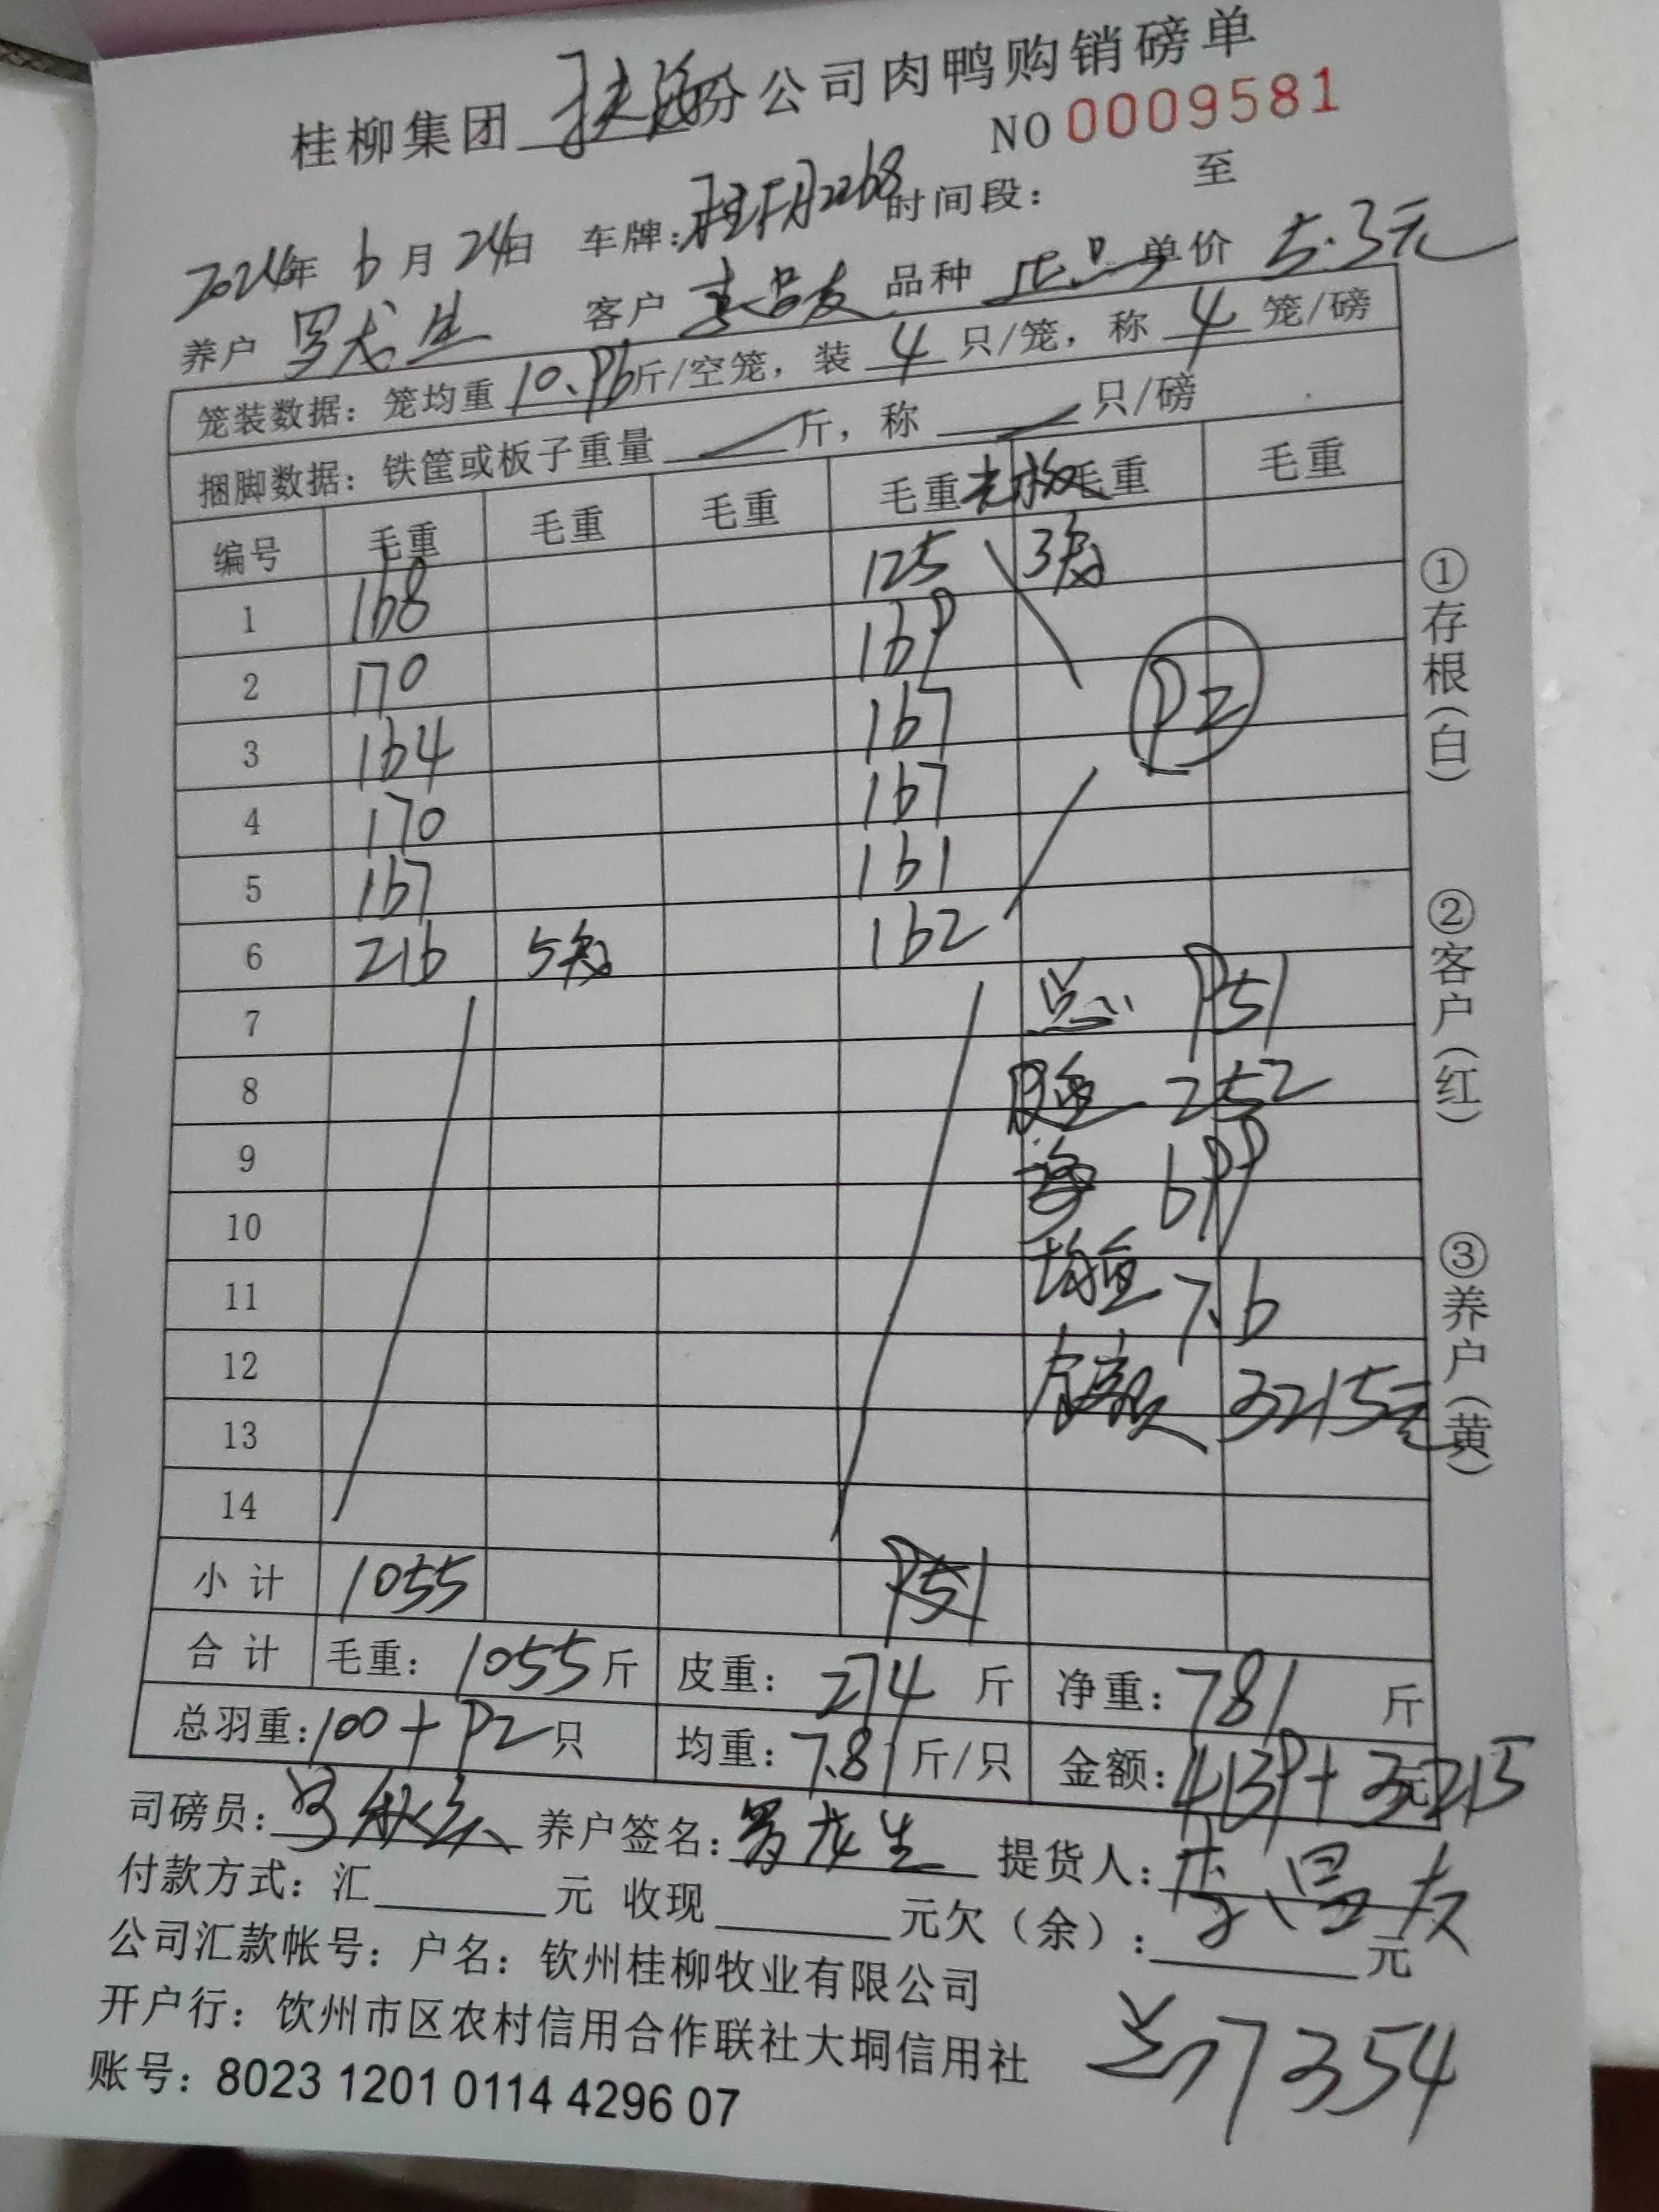 桂柳集团 分公司肉鸭购销磅单
NO 0009581
2024年 6月 24日 车牌: 时间段: 至
养户 罗龙生 客户 品种 正品 单价 5.3元
笼装数据: 笼均重 10.96斤/空笼, 装 4 只/笼, 称 4 笼/磅
捆脚数据: 铁筐或板子重量 斤, 称 只/磅
编号 毛重 毛重 毛重 毛重 毛重 毛重
1 168 125 3
2 170 169
3 164 167 92
4 170 167
5 167 161
6 216 5 162
7 总 951
8 皮重 252
9 净 699
10
11 均重 7.6
12 金额 3215元
13
14
小计 1055 951
合计 毛重: 1055斤 皮重: 274 斤 净重: 781 斤
总羽重: 100+92只 均重: 7.81斤/只 金额: 4139+3215元
司磅员: 养户签名: 罗龙生 提货人:
付款方式: 汇 元 收现 元欠(余): 元
公司汇款帐号: 户名: 钦州桂柳牧业有限公司
开户行: 饮州市区农村信用合作联社大垌信用社
账号: 8023 1201 0114 4296 07
总7354
①存根(白)
②客户(红)
③养户(黄)